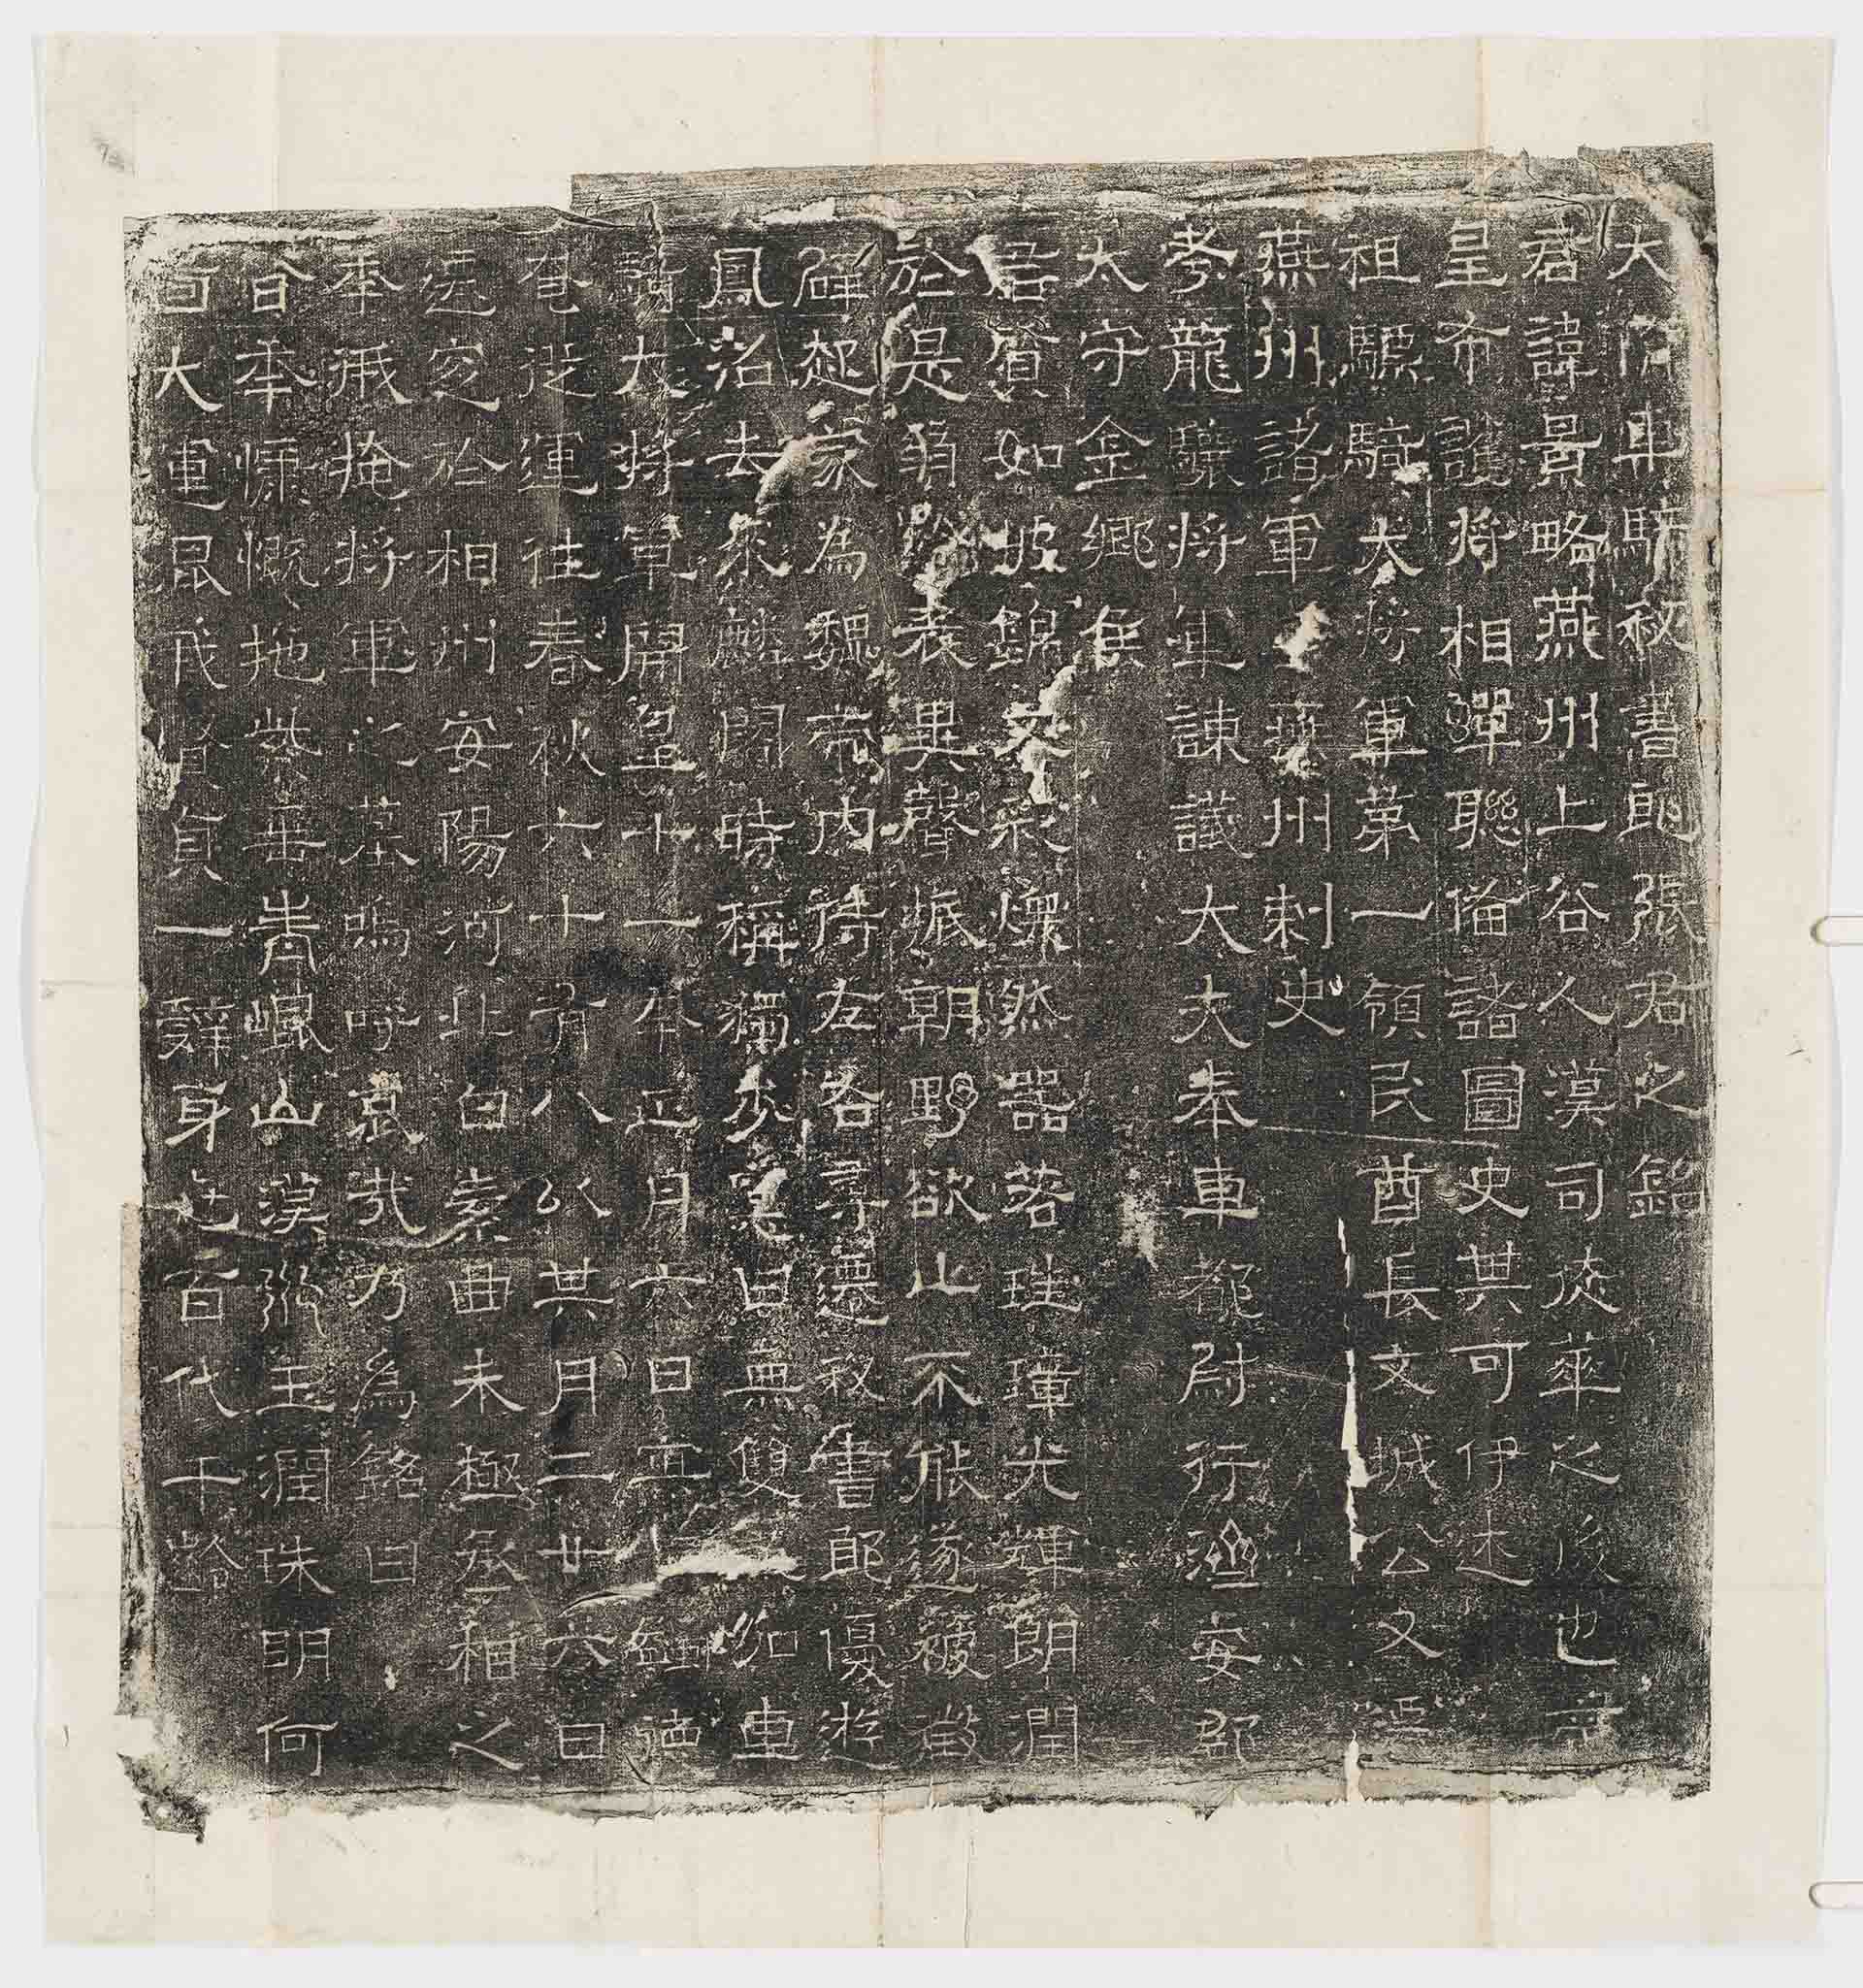 大隋車騎秘書郎張君之銘
君諱景略燕州上谷人漢司徒華之後也
皇帝詵將相蟬聯備諸圖史其可伊述
祖驃騎大將軍第一領民酋長文城公文
燕州諸軍燕州刺史
考龍驤將軍諫議大夫奉車都尉行濟安郡
太守金鄉
君質如披錦文彩爛然器若珪璋光輝朗潤
於是羽表異聲振朝野欲止不能遂被徵
辟起家為魏帝內侍左右尋遷秘書郎優遊
鳳沼去來麟閣時稱獨步世曰無雙加車
騎大將軍開皇十一年正月六日
奄從運往春秋六十有八以其月二廿六日
遷窆於相州安陽河北白素曲未極丞相之
奉戒掩將軍之墓嗚呼哀哉乃為銘曰
昔奉慷慨拖紫垂青崐山漢浦玉潤珠明何
百代千齡